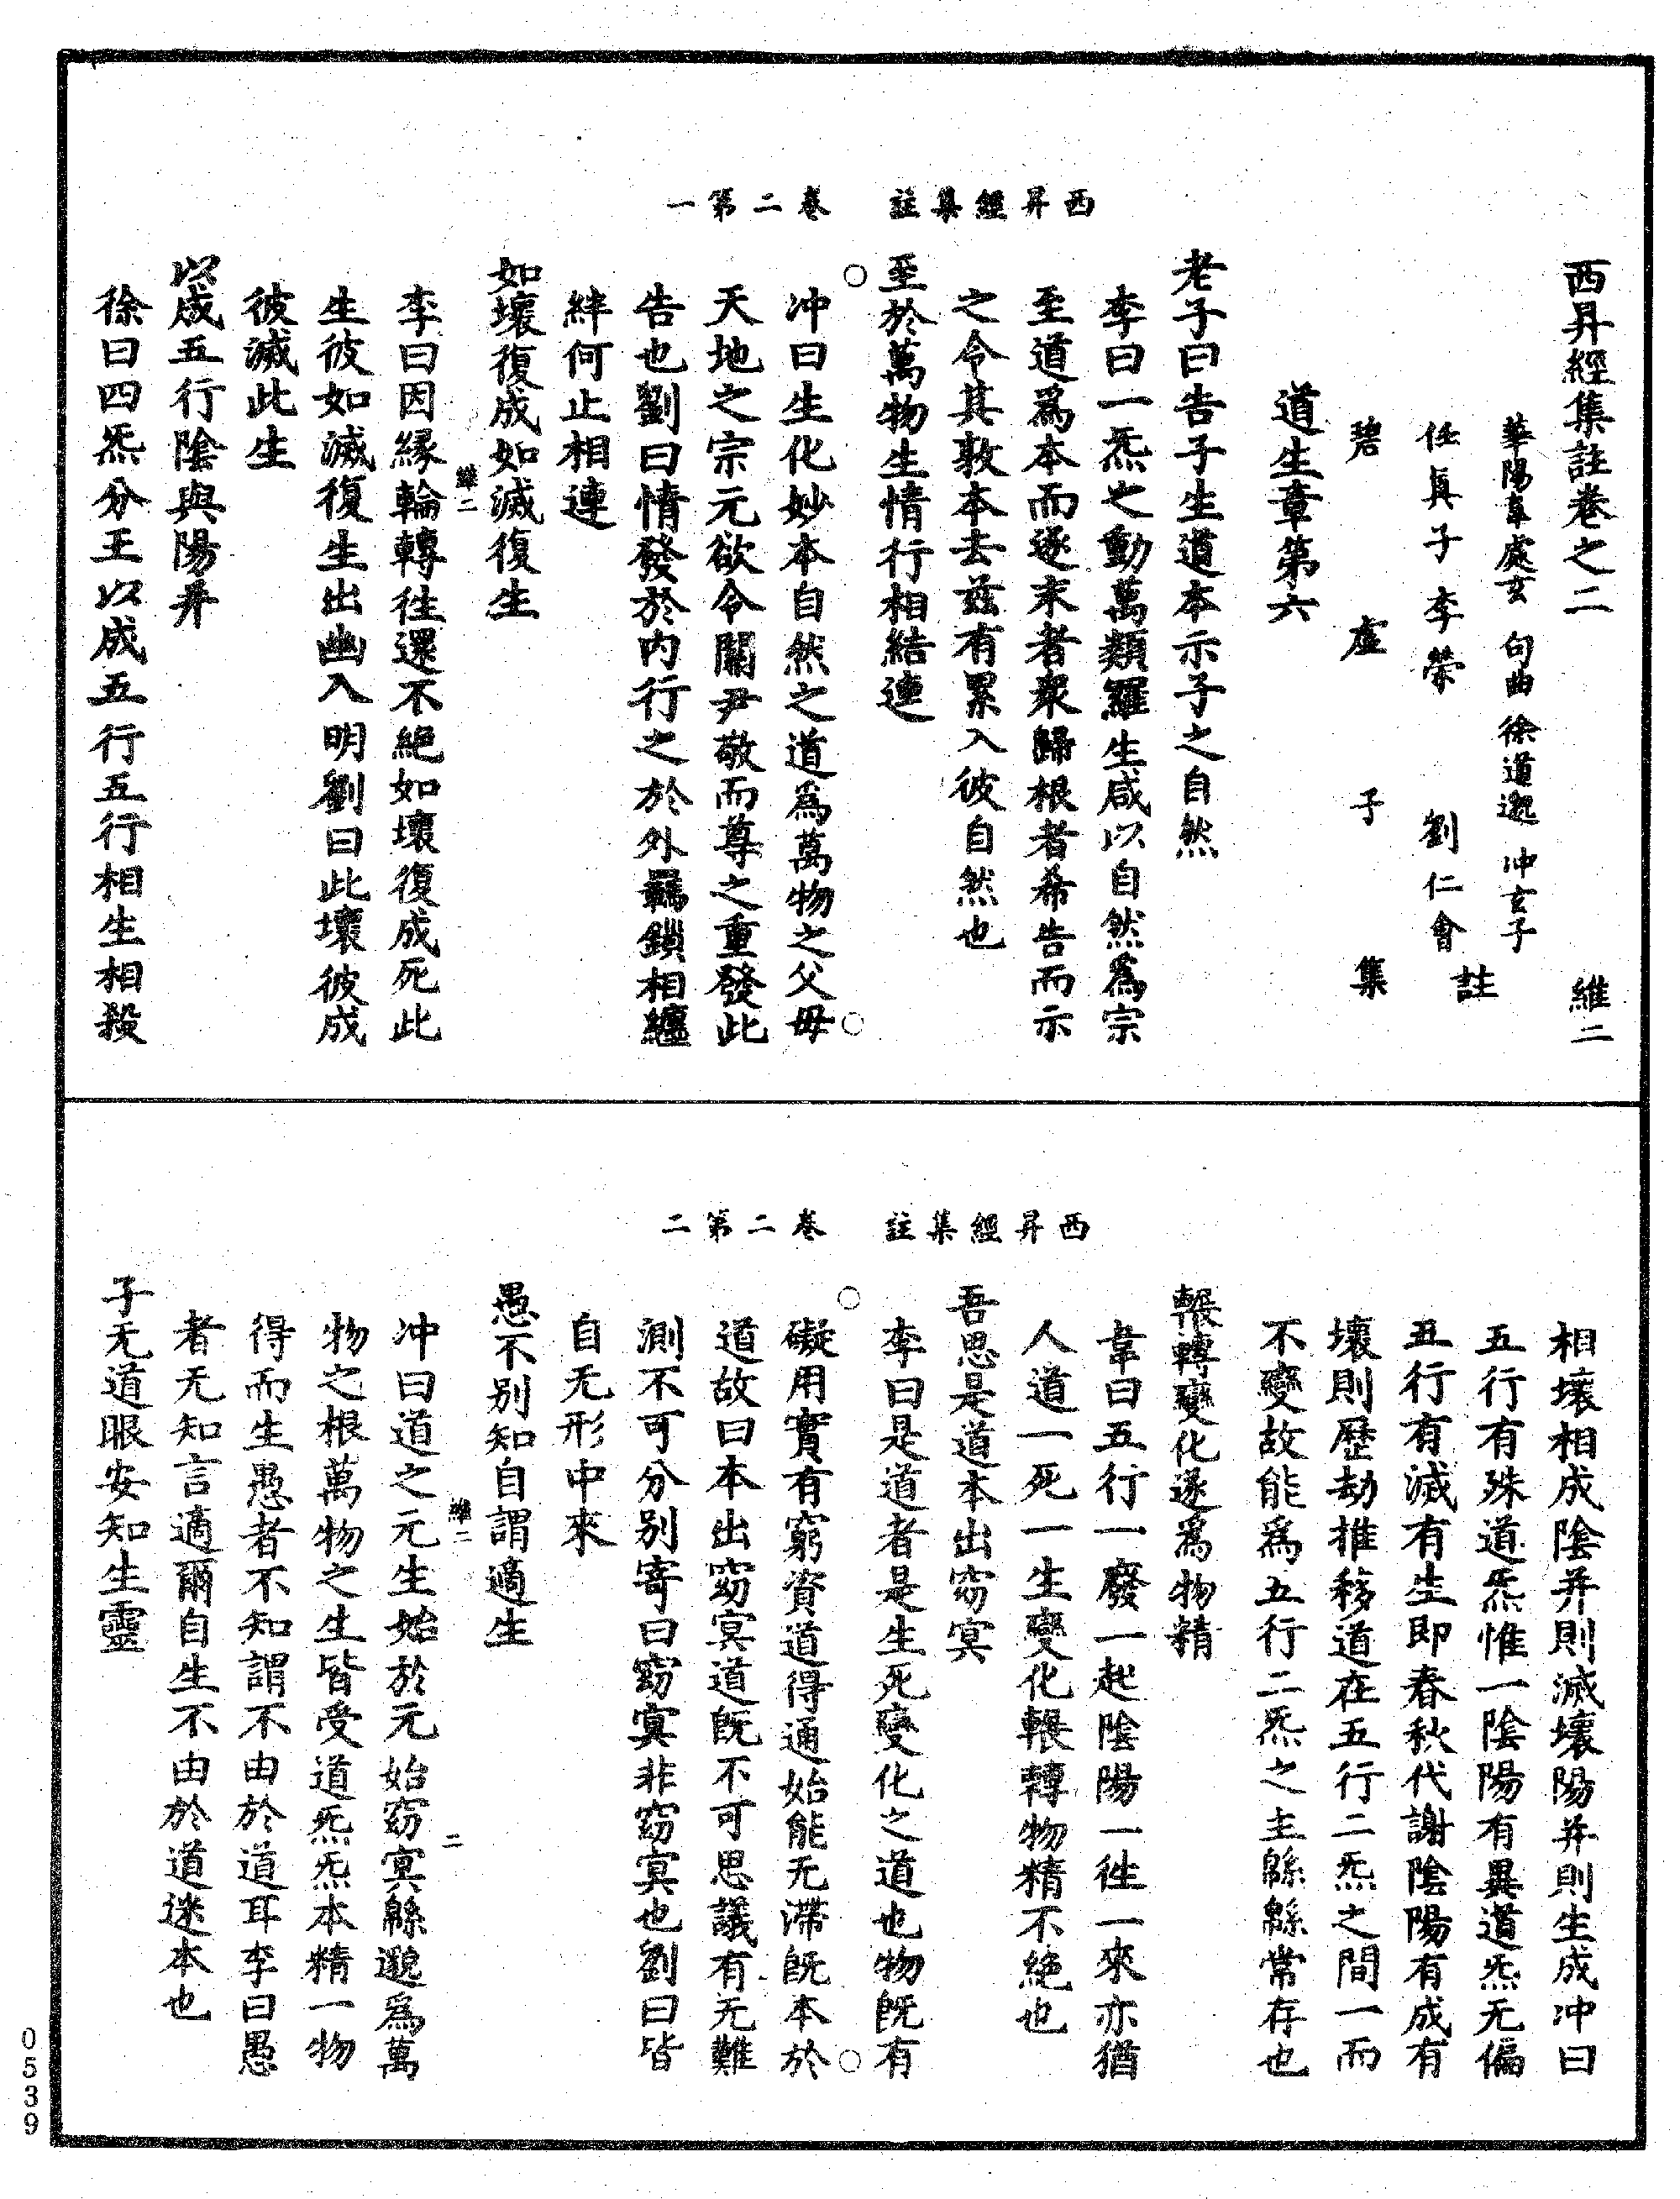 西昇經集註卷二第一
西昇經集註卷之二 維二
華陽韋處玄 句曲徐道邈 冲玄子
任真子李榮 劉仁會 註
碧虛子 集
道生章第六
老子曰告子生道本示子之自然
李曰一炁之動萬類羅生咸以自然爲宗
至道爲本而逐末者衆歸根者希告而示
之令其敦本去兹有累入彼自然也
至於萬物生情行相結連
冲曰生化妙本自然之道爲萬物之父母
天地之宗元欲令關尹敬而尊之重發此
告也劉曰情發於内行之於外羈鎖相纏
絆何止相連
如壞復成如滅復生
維二
李曰因緣輪轉往還不絕如壞復成死此
生彼如滅復生出幽入明劉曰此壞彼成
彼滅此生
以成五行陰與陽并
徐曰四炁分王以成五行五行相生相殺
西昇經集註卷二第二
相壞相成陰并則滅壞陽并則生成冲曰
五行有殊道炁惟一陰陽有異道炁无偏
五行有滅有生即春秋代謝陰陽有成有
壞則歷劫推移道在五行二炁之間一而
不變故能爲五行二炁之主緜緜常存也
輾轉變化遂爲物精
韋曰五行一廢一起陰陽一往一來亦猶
人道一死一生變化輾轉物精不絕也
吾思是道本出窈冥
李曰是道者是生死變化之道也物既有
礙用實有窮資道得通始能无滯既本於
道故曰本出窈冥道既不可思議有无難
測不可分别寄曰窈冥非窈冥也劉曰皆
自无形中來
愚不别知自謂適生
維二 二
冲曰道之元生始於元始窈冥緜邈爲萬
物之根萬物之生皆受道炁炁本精一物
得而生愚者不知謂不由於道耳李曰愚
者无知言適爾自生不由於道迷本也
子无道眼安知生靈
0539